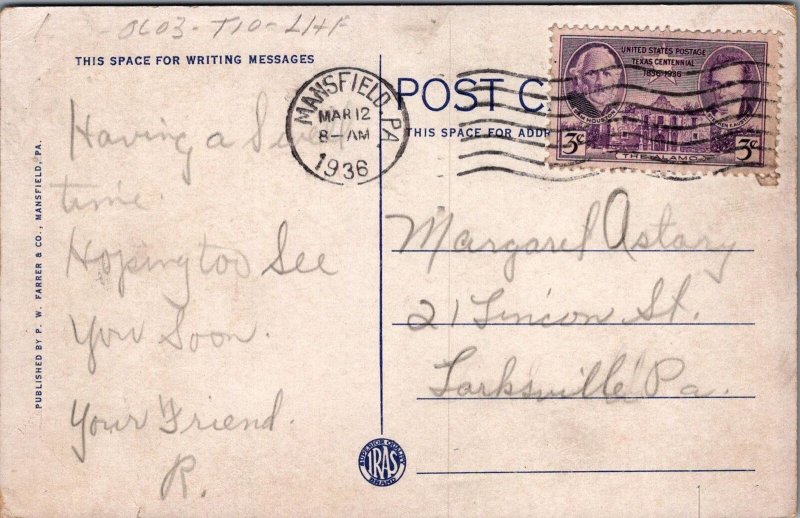 THIS SPACE FOR WRITING MESSAGES
Having a Swell
time.
Hoping too See
You Soon.
Your Friend.
R.
PUBLISHED BY P. W. FARRER & CO., MANSFIELD, PA.
MANSFIELD, PA.
MAR 12
8-AM
1936
POST C
THIS SPACE FOR ADDR
UNITED STATES POSTAGE
TEXAS CENTENNIAL
1836-1936
3¢ THE ALAMO 3¢
Margaret Astary
21 Lincon St.
Larksville Pa.
SUPERIOR QUALITY
IRAS
BRAND